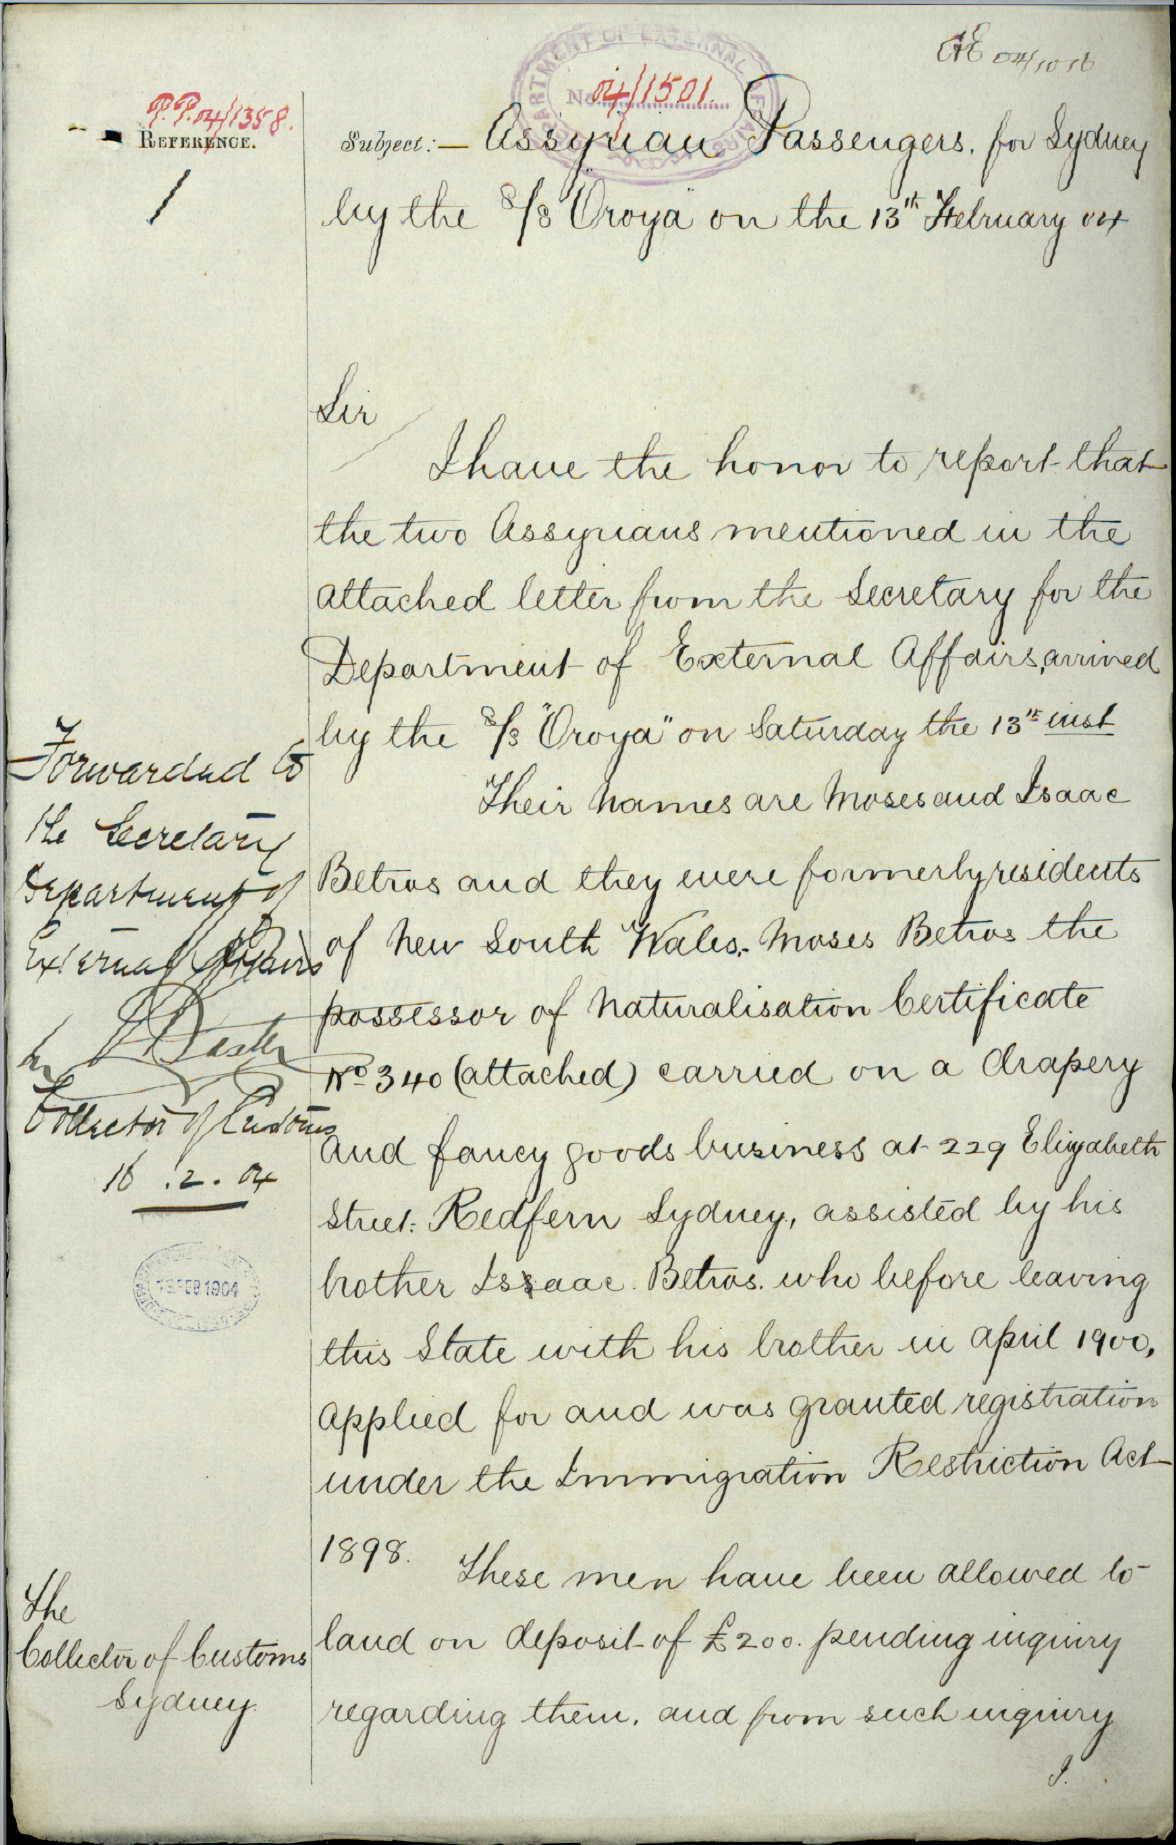 AE 04/1016
DEPARTMENT OF EXTERNAL AFFAIRS
No. 04/1501.
P.P. 04/1358.
REFERENCE.
Subject:— Assyrian Passengers. for Sydney
by the S/S "Oroya" on the 13th February 04
Sir
I have the honor to report that
the two Assyrians mentioned in the
attached letter from the Secretary for the
Department of External Affairs, arrived
by the S/S "Oroya" on Saturday the 13th inst
Their names are Moses and Isaac
Betros and they were formerly residents
of New South Wales. Moses Betros the
possessor of Naturalisation Certificate
No 340 (attached) carried on a drapery
and fancy goods business at 229 Elizabeth
Street. Redfern Sydney, assisted by his
brother Issaac. Betros. who before leaving
this State with his brother in April 1900,
applied for and was granted registration
under the Immigration Restriction Act
1898.
These men have been allowed to
land on deposit of £200. pending inquiry
regarding them. and from such inquiry
I.
Forwarded to
the Secretary
Department of
External Affairs
Collector of Customs
16.2.04
FEB 1904
The
Collector of Customs
Sydney